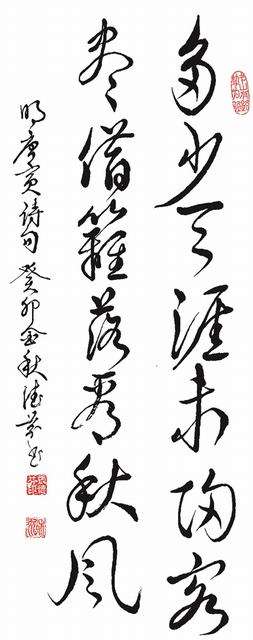 多少天涯未归客
尽借篱落看秋风
明唐寅诗句 癸卯金秋德芬书